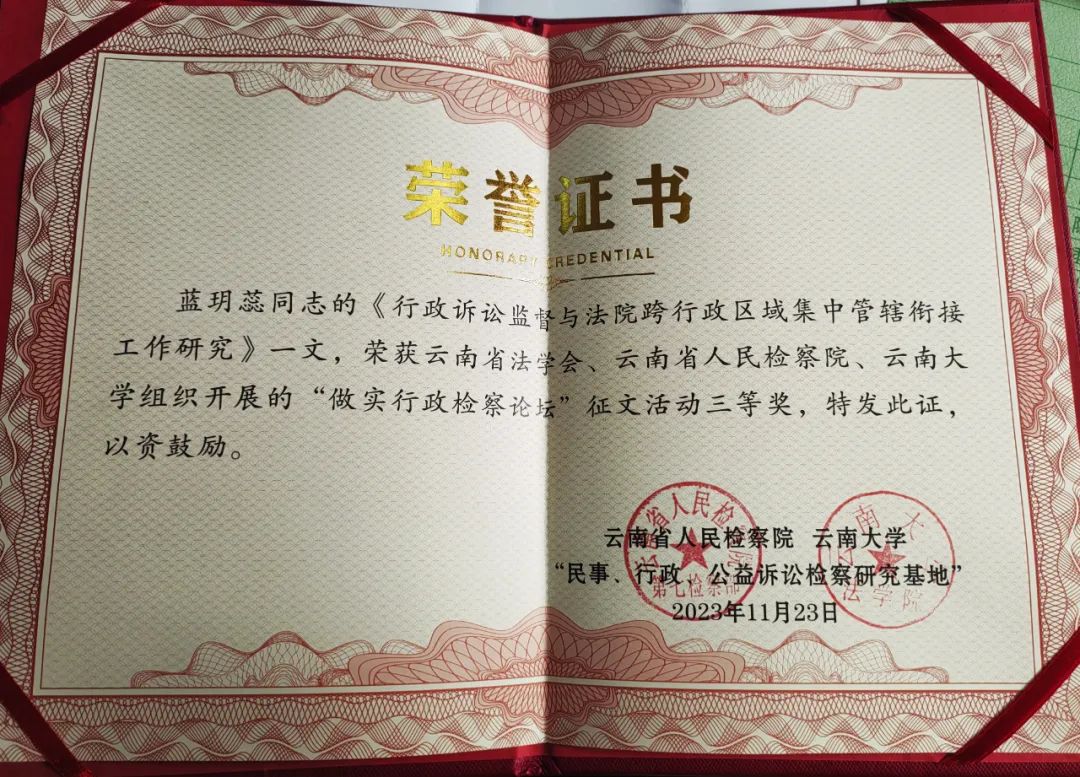 荣誉证书
HONORARY CREDENTIAL
蓝玥蕊同志的《行政诉讼监督与法院跨行政区域集中管辖衔接
工作研究》一文，荣获云南省法学会、云南省人民检察院、云南大
学组织开展的“做实行政检察论坛”征文活动三等奖，特发此证，
以资鼓励。
云南省人民检察院 云南大学
“民事、行政、公益诉讼检察研究基地”
2023年11月23日
云南省人民检察院
第七检察部
云南大学
法学院